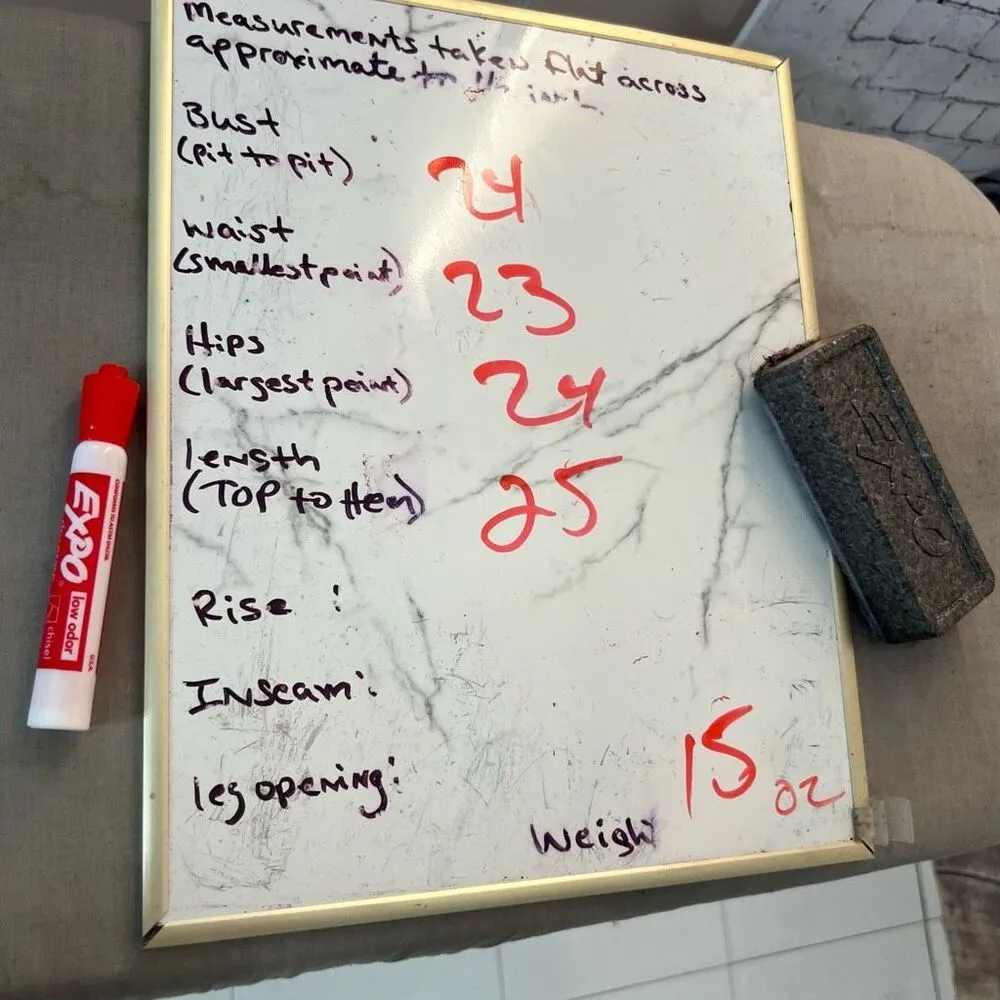 Measurements taken flat across
approximate to
Bust
(pit to pit)
24
waist
(smallest point)
23
Hips
(largest point)
24
length
(TOP to Hem)
25
Rise :
INseam:
leg opening:
15 oz
Weigh
EXPO
low odor
chisel
U.S.A.
EXPO